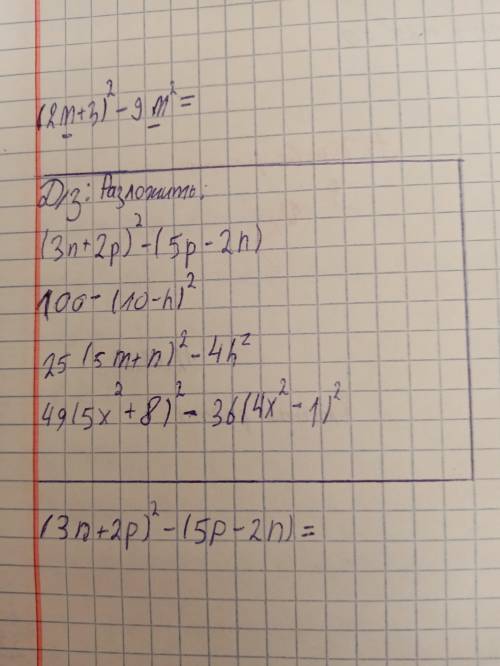 (2m+3)² - 9m² =
Д/з: Разложить:
(3n+2p)² - (5p-2n)
100 - (10-h)²
25(5m+n)² - 4h²
49(5x²+8)² - 36(4x²-1)²
(3n+2p)² - (5p-2n) =